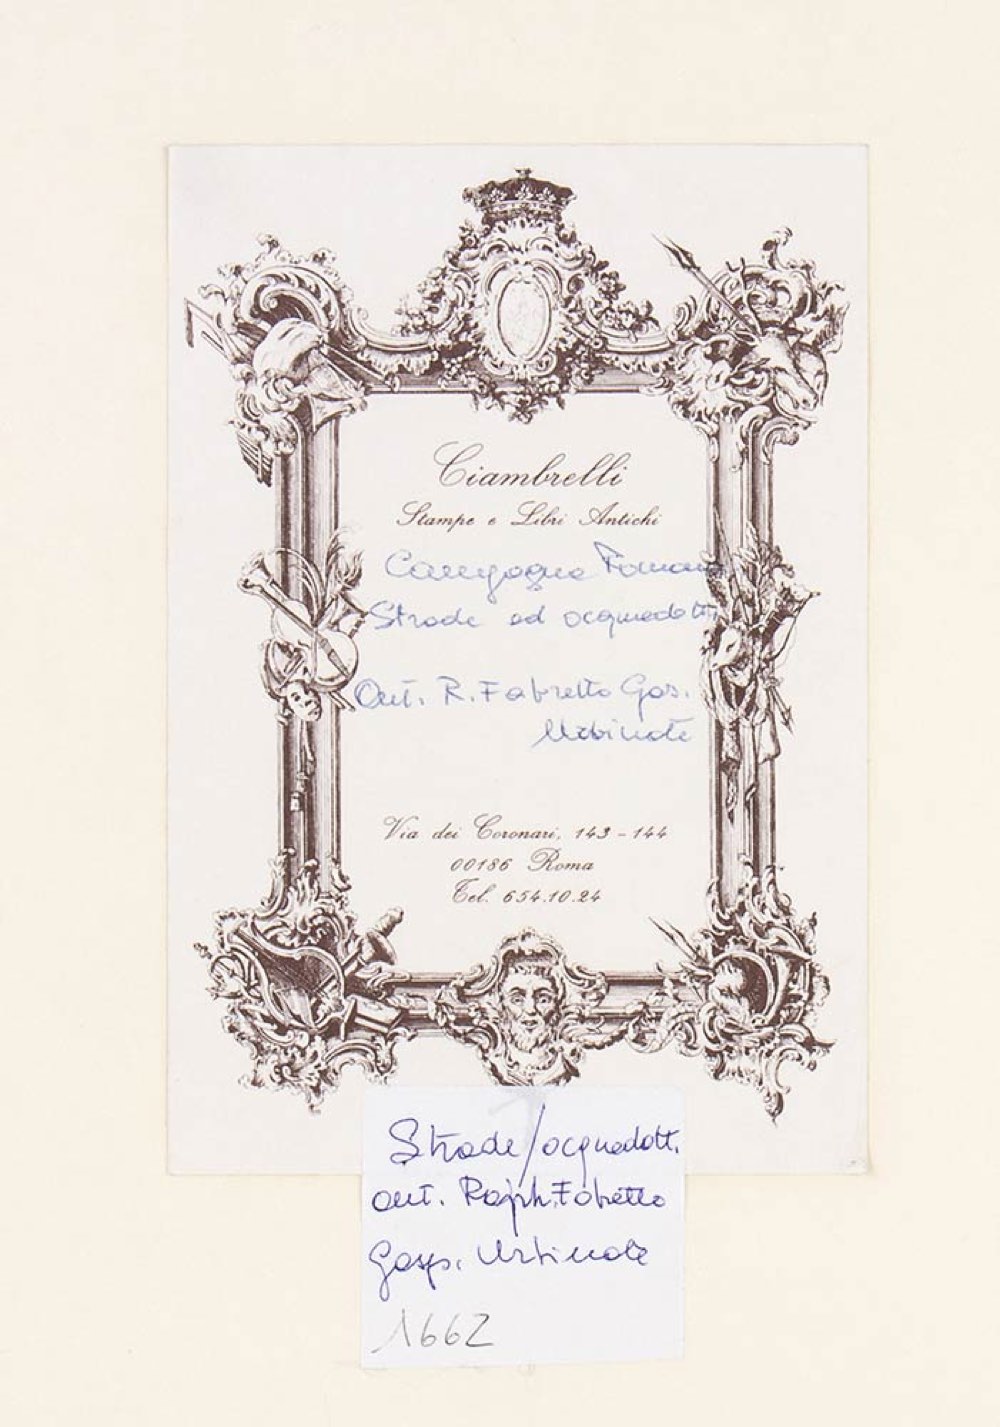 Ciambrelli
Stampe e Libri Antichi
Campagna Romana
Strade ed acquedotti
Aut. R. Fabretto Gas.
Urbinate
Via dei Coronari, 143 - 144
00186 Roma
Tel. 654.10.24
Strade/acquedott.
aut. Raph. Fabretto
Gasp. Urbinate
1662